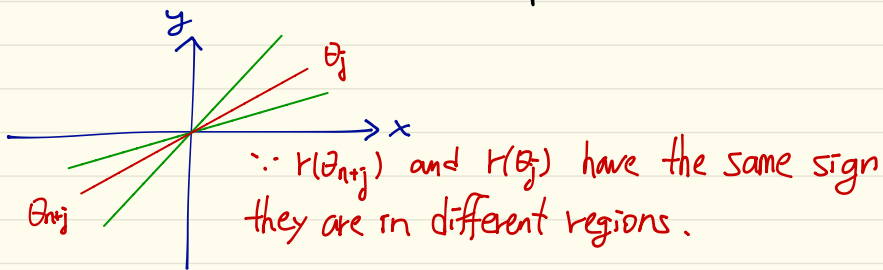 y
θj
x
∵ r(θn+j) and r(θj) have the same sign
θn+j
they are in different regions.